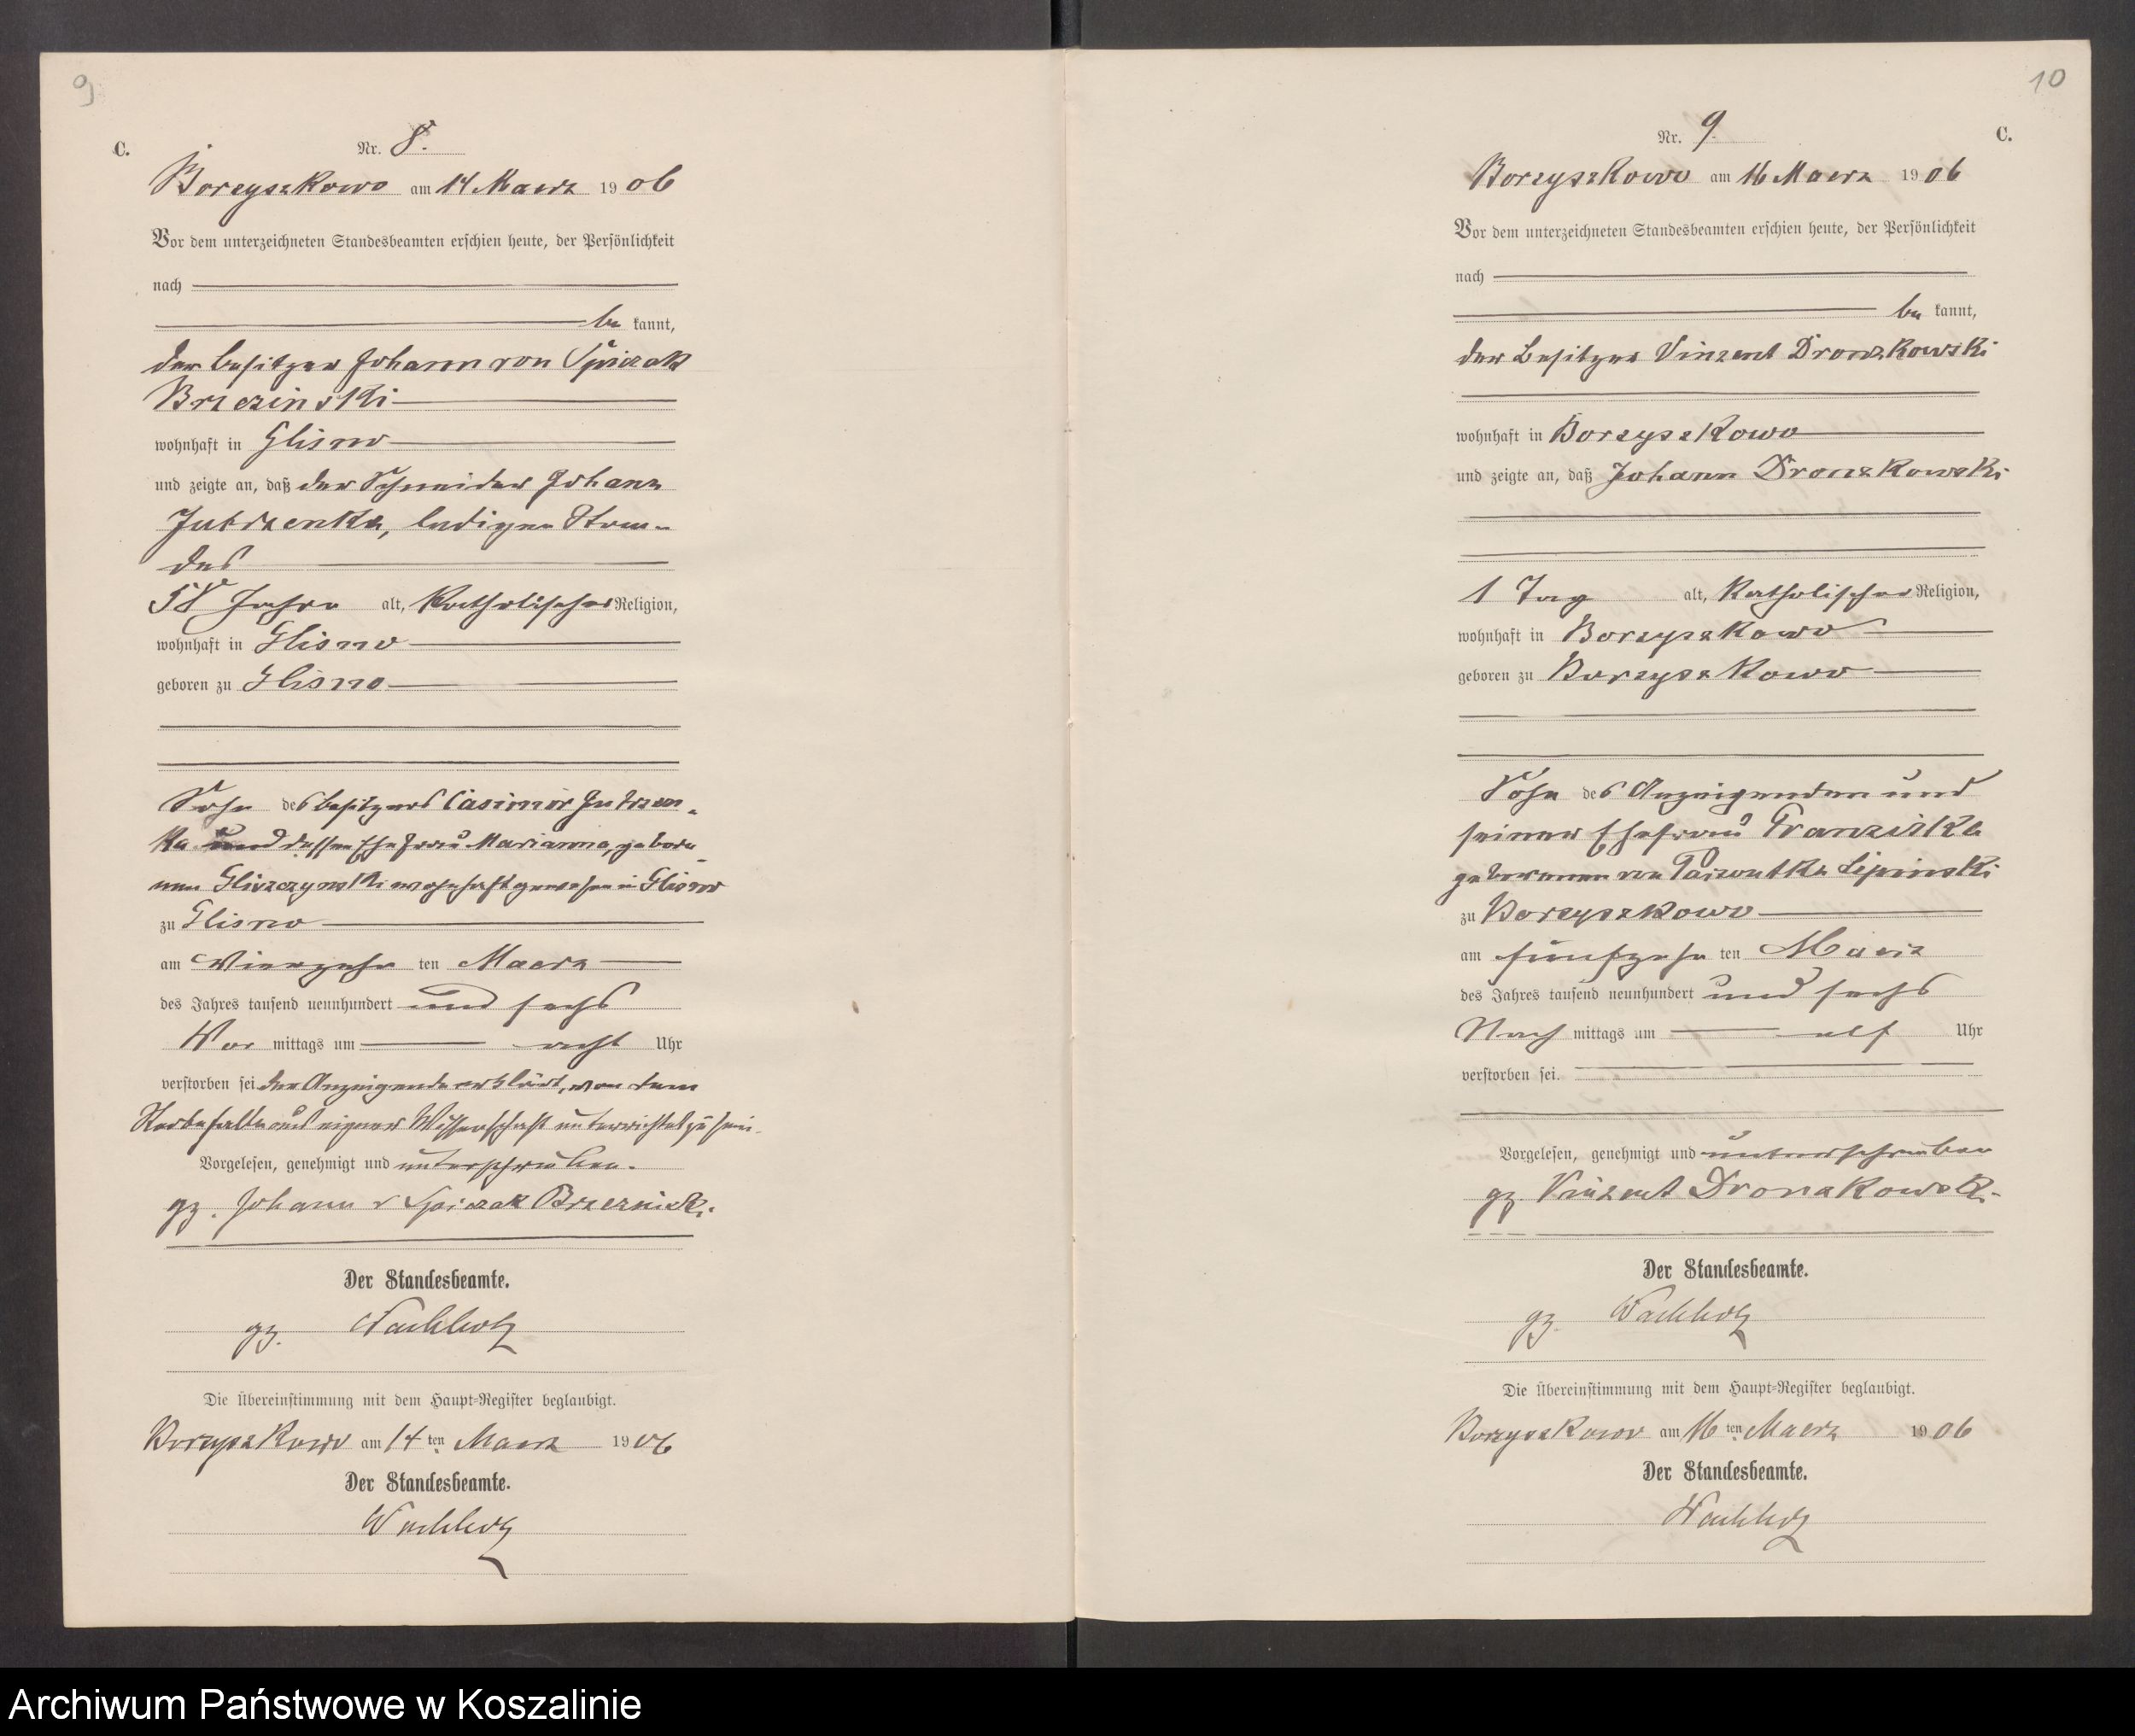 9
C.
Nr. 8.
Borzyszkowo am 14 Maerz 1906
Vor dem unterzeichneten Standesbeamten erschien heute, der Persönlichkeit
nach
be kannt,
der Besitzer Johann von Spiczak
Brzezinski
wohnhaft in Glisno
und zeigte an, daß der Schneider Johann
Jutrzenka, ledigen Stan-
des
58 Jahre alt, Katholischer Religion,
wohnhaft in Glisno
geboren zu Glisno
Sohn des Besitzers Casimir Jutrzen-
ka und dessen Ehefrau Marianna, gebore-
nen Gliszczynski wohnhaft gewesen in Glisno
zu Glisno
am Vierzehn ten Maerz
des Jahres tausend neunhundert und sechs
Vor mittags um acht Uhr
verstorben sei der Anzeigende erklärt, von dem
Sterbefalle aus eigener Wissenschaft unterrichtet zu sein.
Vorgelesen, genehmigt und unterschrieben.
gz. Johann v Spiczak Brzezinski.
Der Standesbeamte.
gz. Wachholz
Die Übereinstimmung mit dem Haupt-Register beglaubigt.
Borzyszkowo am 14 ten Maerz 1906
Der Standesbeamte.
Wachholz
10
Nr. 9.
C.
Borzyszkowo am 16 Maerz 1906
Vor dem unterzeichneten Standesbeamten erschien heute, der Persönlichkeit
nach
be kannt,
der Besitzer Vinzent Dronzkowski
wohnhaft in Borzyszkowo
und zeigte an, daß Johann Dronzkowski
1 Tag alt, Katholischer Religion,
wohnhaft in Borzyszkowo
geboren zu Borzyszkowo
Sohn des Anzeigenden und
seiner Ehefrau Franziska
geborenen von Lipinski
zu Borzyszkowo
am fünfzehn ten Maerz
des Jahres tausend neunhundert und sechs
Nach mittags um elf Uhr
verstorben sei.
Vorgelesen, genehmigt und unterschrieben
gz. Vinzent Dronzkowski.
Der Standesbeamte.
gz. Wachholz
Die Übereinstimmung mit dem Haupt-Register beglaubigt.
Borzyszkowo am 16 ten Maerz 1906
Der Standesbeamte.
Wachholz
Archiwum Państwowe w Koszalinie